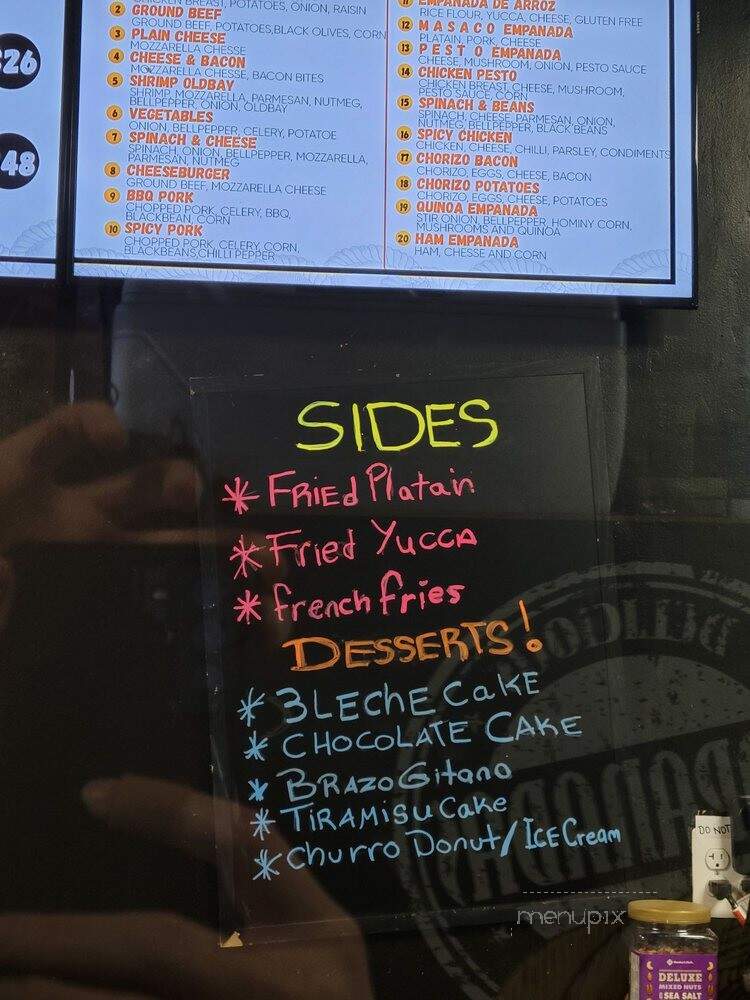 $26
48
CHICKEN BREAST, POTATOES, ONION, RAISIN
2 GROUND BEEF
GROUND BEEF, POTATOES,BLACK OLIVES, CORN
3 PLAIN CHEESE
MOZZARELLA CHESSE
4 CHEESE & BACON
MOZZARELLA CHESSE, BACON BITES
5 SHRIMP OLDBAY
SHRIMP, MOZZARELLA, PARMESAN, NUTMEG,
BELLPEPPER, ONION, OLDBAY
6 VEGETABLES
ONION, BELLPEPPER, CELERY, POTATOE
7 SPINASH & CHEESE
SPINASH, ONION, BELLPEPPER, MOZZARELLA,
PARMESAN, NUTMEG
8 CHEESEBURGER
GROUND BEEF, MOZZARELLA CHEESE
9 BBQ PORK
CHOPPED PORK, CELERY, BBQ,
BLACKBEAN, CORN
10 SPICY PORK
CHOPPED PORK, CELERY, CORN,
BLACKBEANS,CHILLI PEPPER
11 EMPANADA DE ARROZ
RICE FLOUR, YUCCA, CHEESE, GLUTEN FREE
12 MASACO EMPANADA
PLATAIN, PORK, CHEESE
13 PESTO EMPANADA
CHEESE, MUSHROOM, ONION, PESTO SAUCE
14 CHICKEN PESTO
CHICKEN BREAST, CHEESE, MUSHROOM,
PESTO SAUCE, CORN
15 SPINASH & BEANS
SPINASH, CHEESE, PARMESAN, ONION,
NUTMEG, BELLPEPPER, BLACK BEANS
16 SPICY CHICKEN
CHICKEN, CHEESE, CHILLI, PARSLEY, CONDIMENTS
17 CHORIZO BACON
CHORIZO, EGGS, CHEESE, BACON
18 CHORIZO POTATOES
CHORIZO, EGGS, CHEESE, POTATOES
19 QUINOA EMPANADA
STIR ONION, BELLPEPPER, HOMINY CORN,
MUSHROOMS AND QUINOA
20 HAM EMPANADA
HAM, CHESSE AND CORN
SIDES
* FRiEd Platain
* Fried Yucca
* french fries
DESSERTS!
* 3 LEChe CaKE
* CHOCOLATE CAKE
* BRAZO Gitano
* TiRAMiSu Cake
* Churro Donut/ICE Cream
DELICIOUS
DO NOT
menupix
DELUXE
MIXED NUTS
SEA SALT